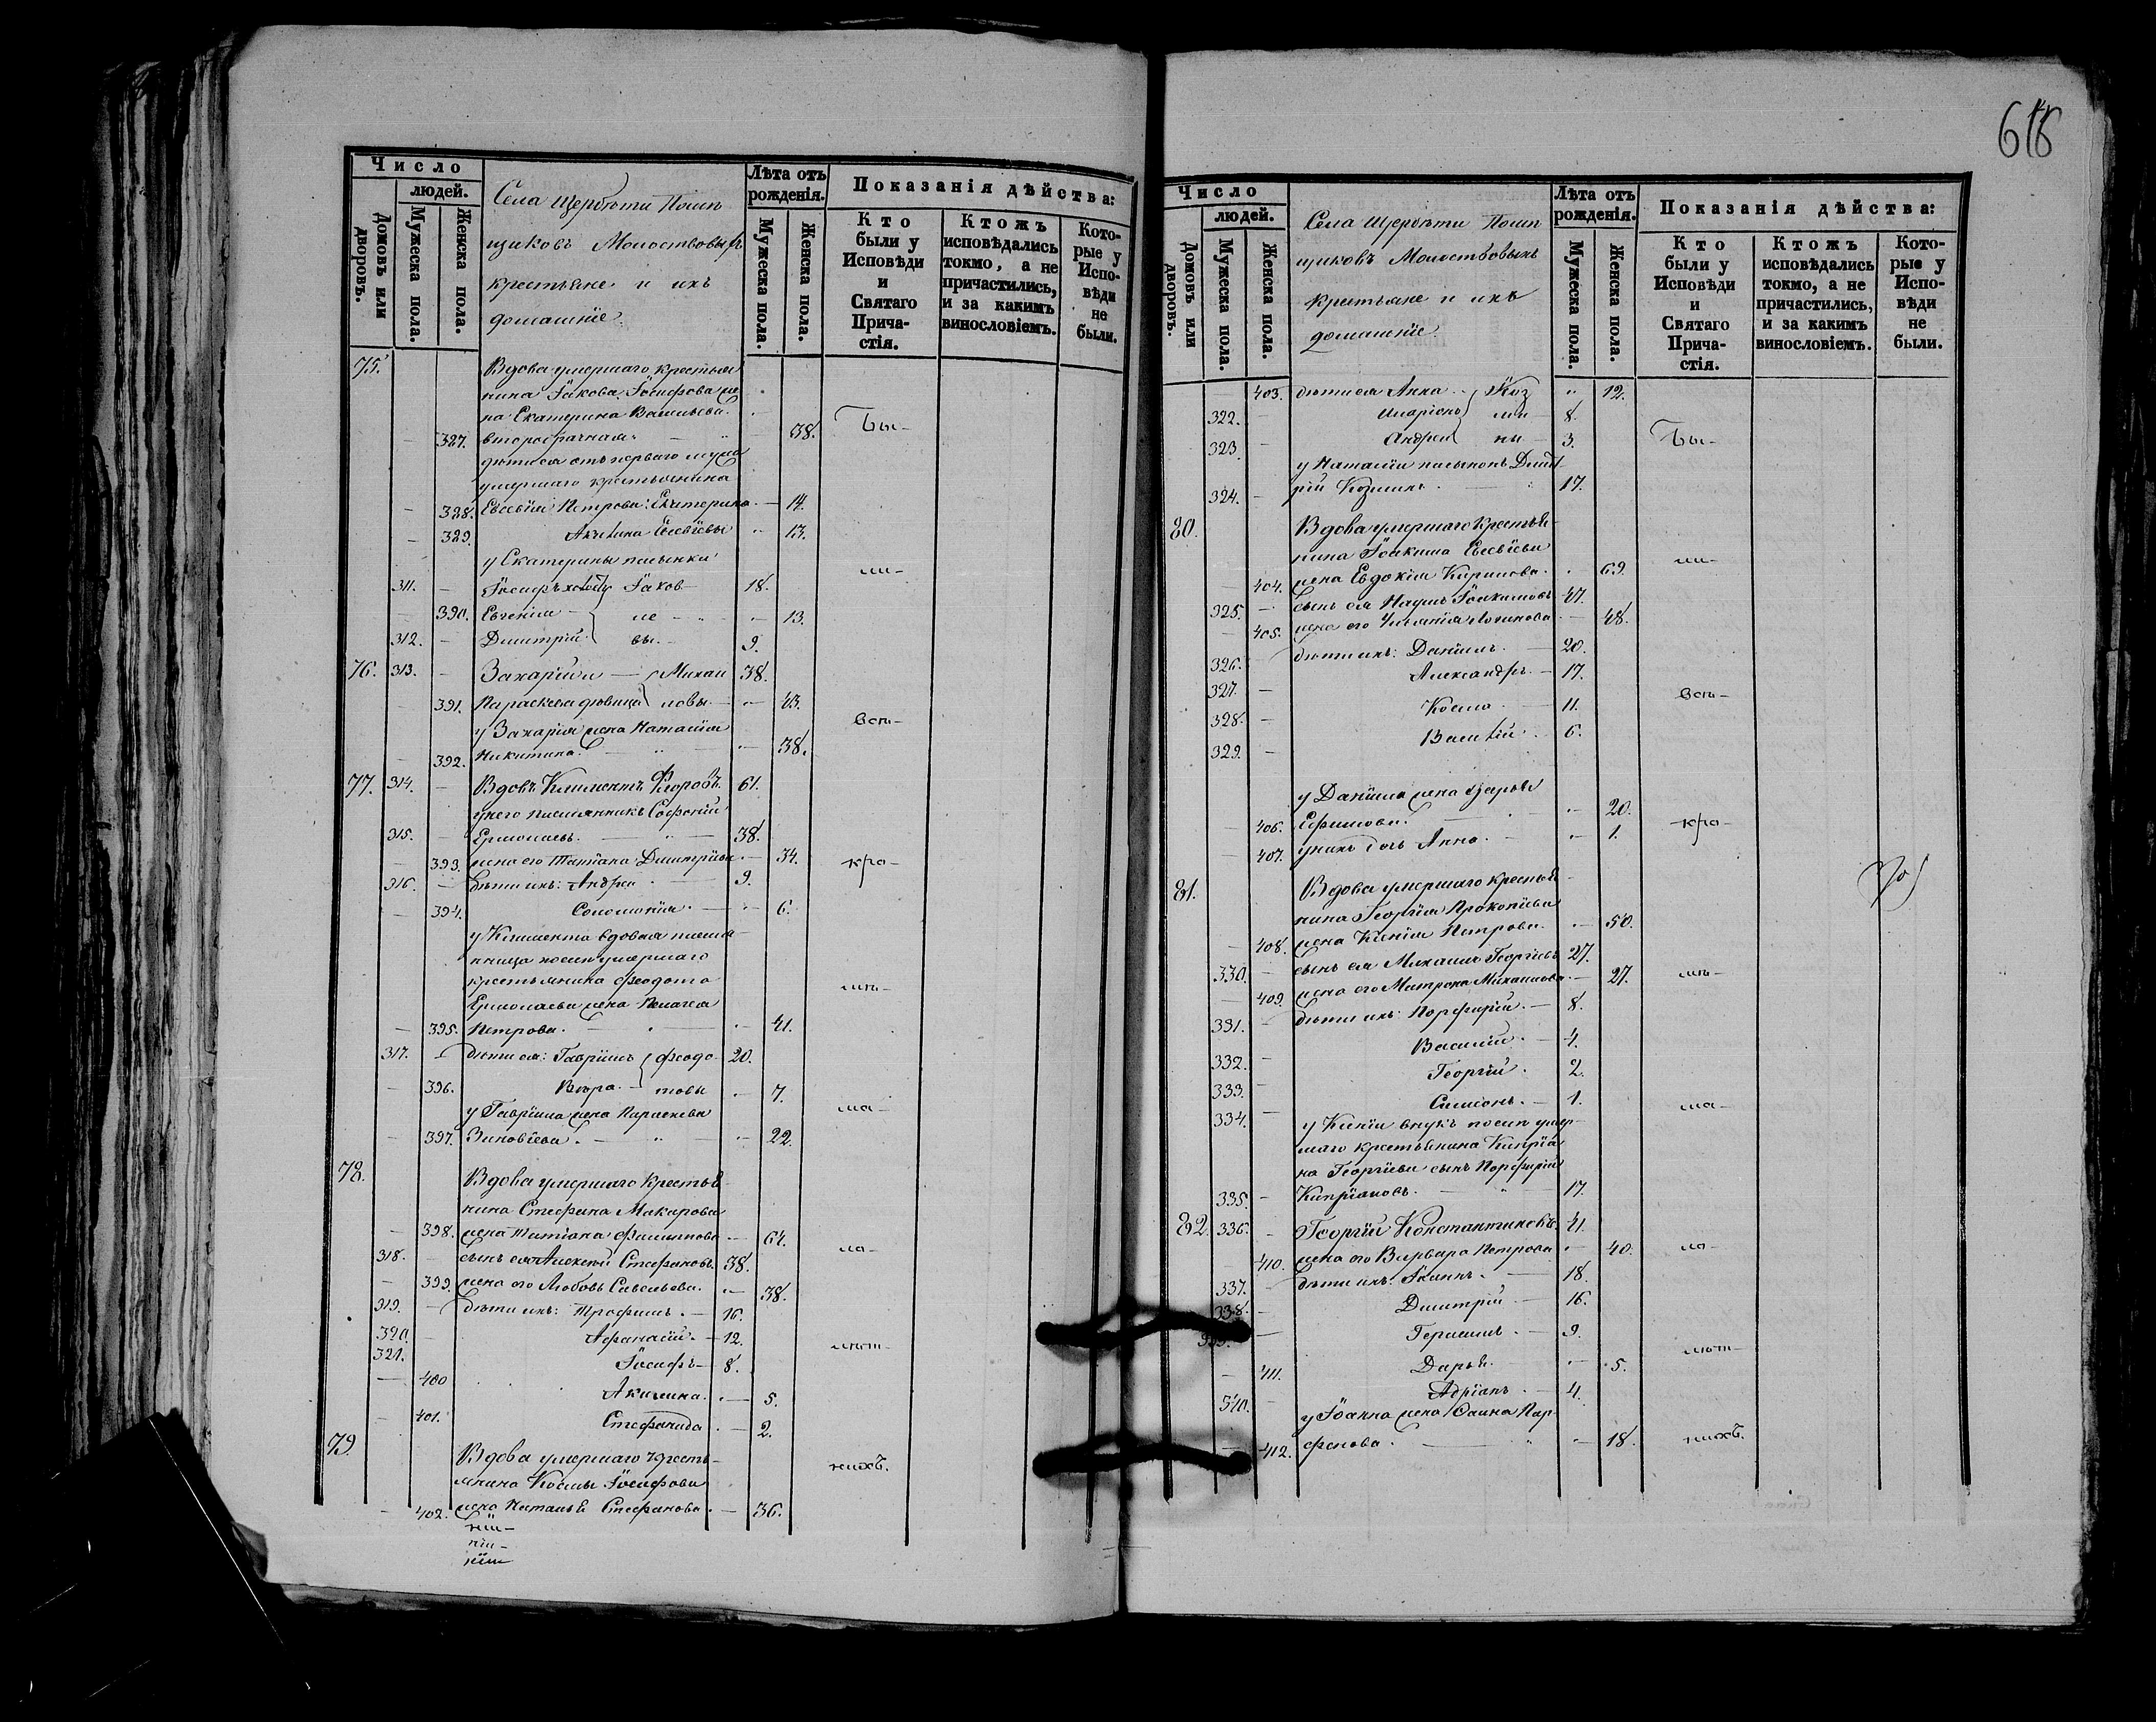 618
Число
людей.
Домовъ или дворовъ.
Мужеска пола.
Женска пола.
Села Щербѣти Помѣ
щиковъ Молоствовыхъ
крестьяне и ихъ
домашніе.
Лѣта отъ рожденія.
Мужеска пола.
Женска пола.
Показанія дѣйства:
Кто были у Исповѣди и Святаго Причастія.
Ктожъ исповѣдались токмо, а не причастились, и за какимъ винословіемъ.
Которые у Исповѣди не были.
75. Вдова умершаго крестья
нина Іакова Іосифова же
на Екатерина Васильева
387. второбрачная 38. Бы-
дѣти ея отъ перваго мужа
умершаго крестьянина
388. Евсевія Петрова: Екатерина - 14.
389. Акилина Евсевіевы 13.
у Екатерины пасынки
ли-
311. - Іосифъ холостъ Іаков- 18.
- 390. Евгенія ле - 13.
312. - Димитрій вы. 9.
76. 313. - Захарій Михаи 38.
- 391. Параскева дѣвица ловы - 43.
у Захарія жена Наталія
всѣ-
- 392. Никитина. - 38.
77. 314. - Вдовъ Климентъ Флоровъ. 61.
у него племянникъ Софоній
315. - Ермолаевъ. 38.
- 393. жена его Татіана Димитріева. - 34. кра-
316. - дѣти ихъ: Андрей 9.
- 394. Соломонія. - 6.
у Климента вдовая племя-
нница послѣ умершаго
крестьянина Феодота
мѣ-
Ермолаева жена Пелагея
- 395. Петрова. - 41.
317. - дѣти ея: Гавріилъ Феодо- 20.
- 396. Вѣра. товы - 7.
у Гавріила жена Параскева
ма-
- 397. Зиновіева. - 22.
78. Вдова умершаго крестья-
нина Стефана Макарова
- 398. жена Татіана Филиппова - 64.
318. - сынъ ея Алексѣй Стефановъ. 38. ло-
- 399. жена его Любовь Савельева. - 38.
319. - дѣти ихъ: Трофимъ. - 16.
320. - Афанасій. - 12.
321. Іосифъ - 8. лѣт-
- 400 Акилина. - 5.
- 401. Стефанида - 2.
79. Вдова умершаго кресть-
янина Космы Іосифова
нихъ.
- 402. жена Наталья Стефанова. - 36.
Число
людей.
Домовъ или дворовъ.
Мужеска пола.
Женска пола.
Села Щербѣти Помѣ
щиковъ Молоствовыхъ
крестьяне и ихъ
домашніе.
Лѣта отъ рожденія.
Мужеска пола.
Женска пола.
Показанія дѣйства:
Кто были у Исповѣди и Святаго Причастія.
Ктожъ исповѣдались токмо, а не причастились, и за какимъ винословіемъ.
Которые у Исповѣди не были.
- 403. дѣти ея Анна Коз 12.
322. - Иларіонъ ми 8.
323. - Андрей ны 3. Бы-
у Наталіи пасынокъ Дмит
324. - рій Козминъ. 17.
80. Вдова умершаго крестья-
нина Іоакима Евсевіева
ли-
- 404. жена Евдокія Карпова. 69.
325. - сынъ ея Наумъ Іоакимовъ 47.
- 405. жена его Логинова - 48.
326. дѣти ихъ: Даніилъ. - 20.
327. - Александръ. - 17.
328. - Косма. - 11. всѣ-
329. - Василій. - 6.
у Даніила жена Дарья
- 406. Ефимова. - 20.
- 407. у нихъ дочь Анна. - 1. кра-
81. Вдова умершаго крестья-
нина Георгія Прокопіева
- 408. жена Ксенія Петрова. - 50.
330. - сынъ ея Михаилъ Георгіевъ 27.
- 409. жена его Матрона Михайлова. - 27. мѣ-
331. - дѣти ихъ: Порфирій. - 8.
332. - Василій. - 4.
333. - Георгій. 2.
334. - Симеонъ. - 1.
у Ксеніи внукъ послѣ умер-
ма-
шаго крестьянина Кипріа
на Георгіева сынъ Порфирій
335. - Кипріановъ. 17.
82. 336. - Георгій Константиновъ. 41.
- 410. жена его Варвара Петрова - 40. ло-
337. - дѣти ихъ: Іоаннъ. - 18.
338. - Димитрій - 16.
339. - Герасимъ. - 9.
- 411. Дарья. - 5. лѣт-
340. - Адріанъ. - 4.
у Іоанна жена Пар
- 412. фенова. - 18. нихъ.